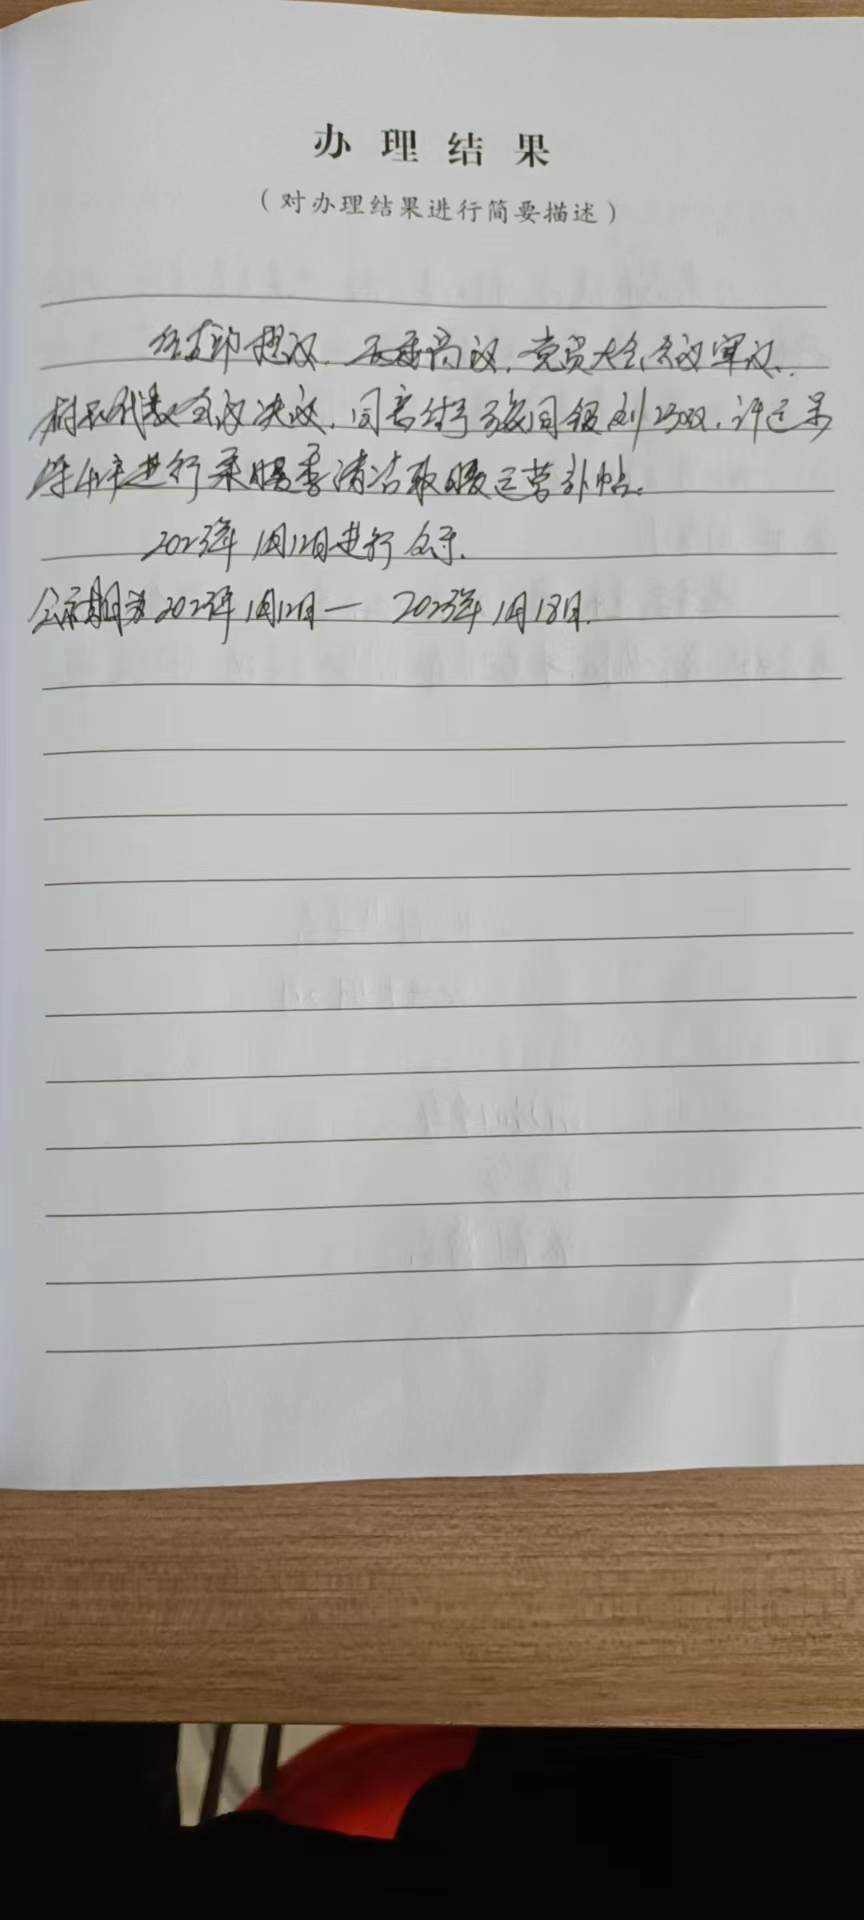 办理结果
（对办理结果进行简要描述）
经支部提议，两委商议，党员大会会议审议，
村民代表会议决议，同意给予
进行采暖季清洁取暖运营补帖。
2023年1月12日进行公示.
公示期自为2023年1月12日—2023年1月18日.